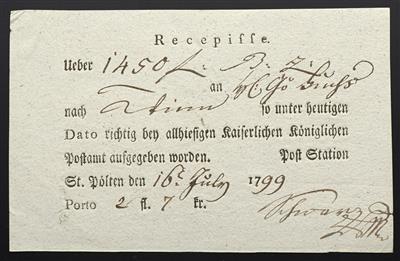 Recepiſſe.
Ueber 1450 f. B. Z.
an
nach Wienn ſo unter heutigen
Dato richtig bey allhieſigen Kaiſerlichen Königlichen
Poſtamt aufgegeben worden. Poſt Station
St. Pölten den 16t July 1799
Porto 2 fl. 7 kr.